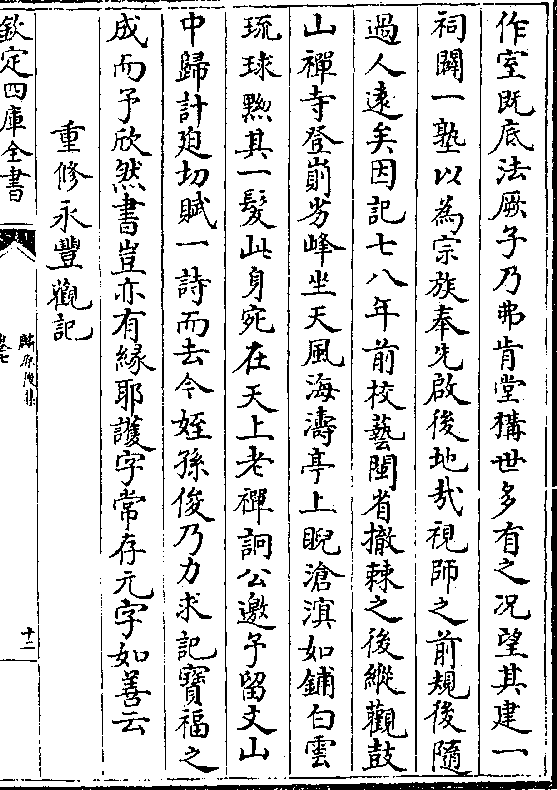 作室既底法厥子乃弗肯堂構世多有之况望其建一
祠闢一塾以為宗族奉先啟後地㢤視師之前規後隨
過人遠矣因記七八年前校藝閩省撤棘之後縱觀鼓
山禪寺登崱屴峰坐天風海濤亭上睨滄溟如鋪白雲
琉球㸃其一髮此身宛在天上老禪訶公邀予留丈山
中歸計廹切賦一詩而去今姪孫俊乃力求記寳福之
成而予欣然書豈亦有縁耶䕶字常存元字如善云
重修永豐觀記
欽定四庫全書
麟原後集
卷七
十二